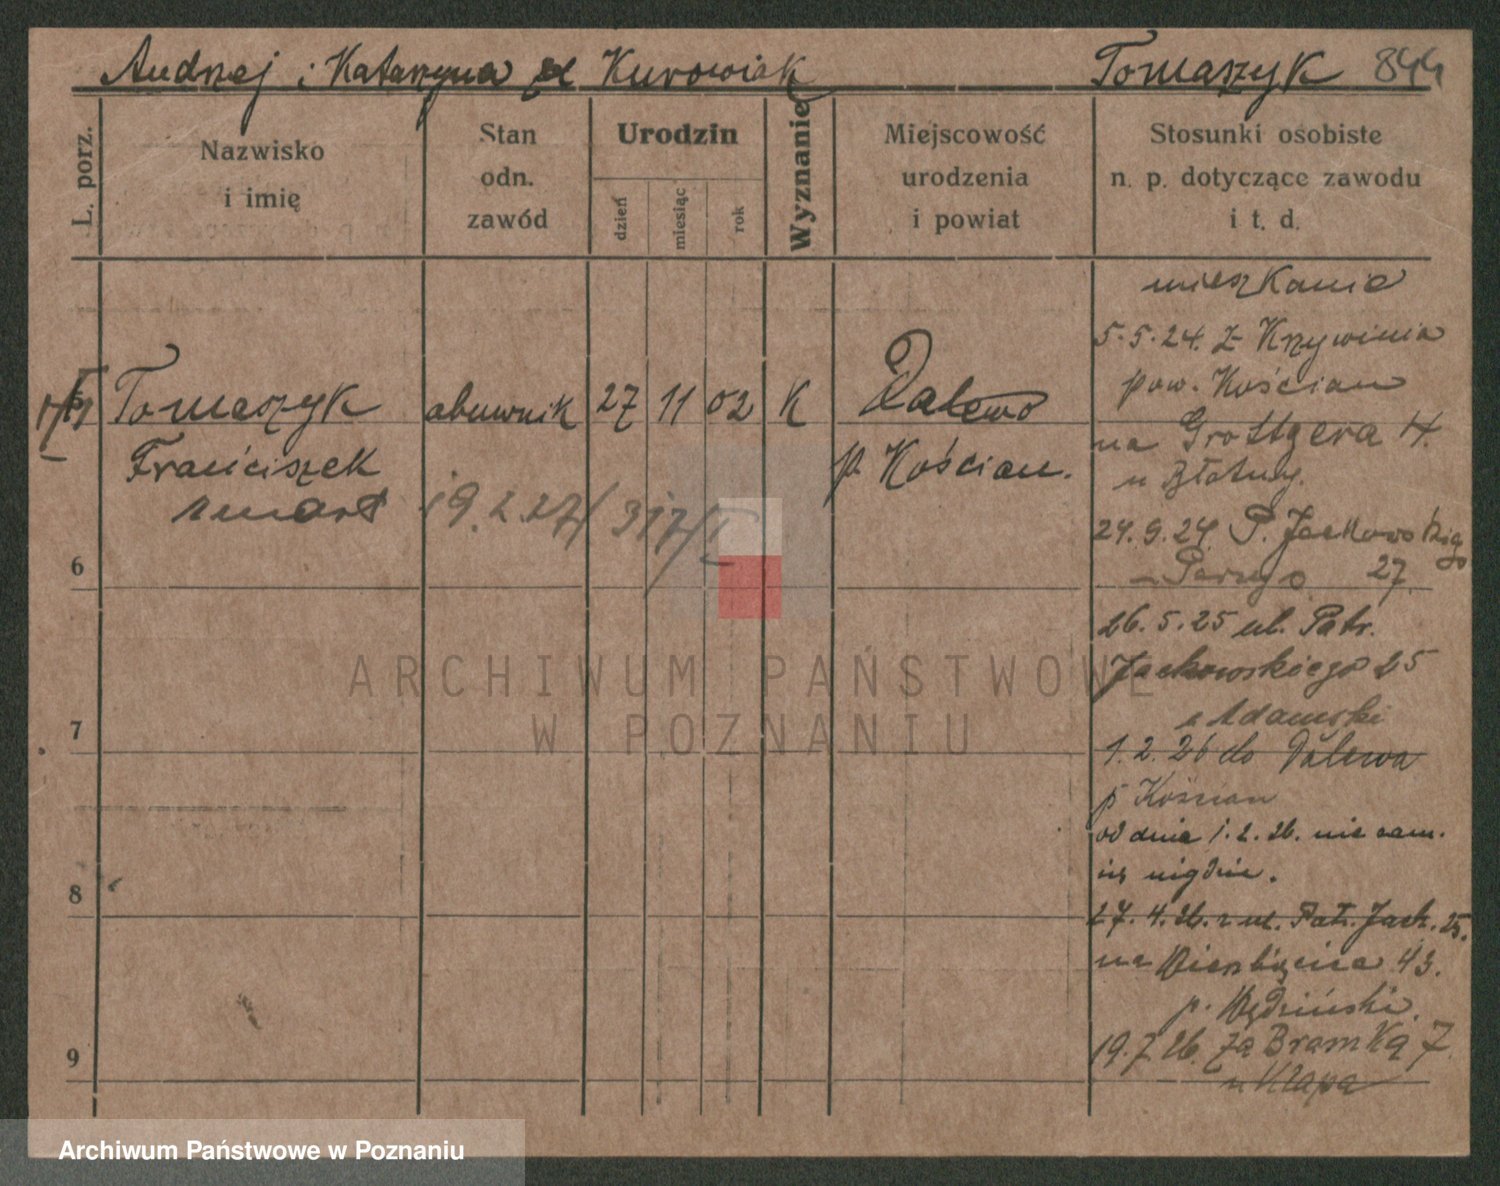 Andrzej i Katarzyna zd Kurowiak Tomaszyk 844
L. porz.
Nazwisko
i imię
Stan
odn.
zawód
Urodzin
dzień
miesiąc
rok
Wyznanie
Miejscowość
urodzenia
i powiat
Stosunki osobiste
n. p. dotyczące zawodu
i t. d.
5
Tomaszyk
Franciszek
zmarł 19.2.27/317/I
obuwnik
27 11 02 K
Dalewo
p. Kościan.
mieszkanie
5.5.24. z Krzywinia
pow. Kościan
na Grottgera 4.
24.9.24 P. Jackowskiego
27.
26.5.25 ul. Patr.
Jackowskiego 25
u Adamski
1.2.26 do Dalewa
p Kościan
od dnia 1.2.26. nie zam.
się nigdzie.
27.4.26. z ul. Patr. Jack. 25.
na Wierzbięcice 43.
p. Wędziński.
19.7.26. Za Bramką 7.
u Kłapa
6
7
8
9
ARCHIWUM PAŃSTWOWE
W POZNANIU
Archiwum Państwowe w Poznaniu